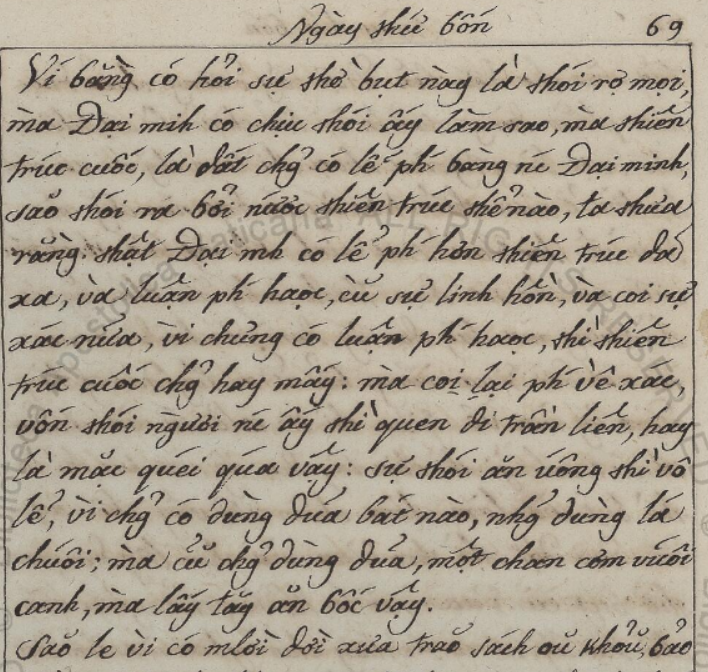 Ngày thứ bốn 69
Ví bàng có hỏi sự thờ bụt này là thói rợ mọi,
mà Đại minh có chịu thói ấy làm sao, mà thiên
trúc cuốc, là đất chg̉ có lễ phí bàng nc Đại minh,
sao thói ra bởi nước thiên trúc thể nào, ta thưa
rằng: thật Đại mh có lễ ph hơn thiên trúc đã
xa, và luận ph haọc, cù sự linh hồn, và coi sự
xác nữa, vì chưng có luận ph haọc, thì thiên
trúc cuốc chg̉ hay mấy: mà coi lại ph về xác,
vốn thói người nc ấy thì quen đi trần liên, hay
là mặc quéi qúa vậy: sự thói ăn uống thì vô
lễ, vì chg̉ có dùng đũa bát nào, nhg̉ dùng lá
chuối; mà cũ chg̉ dùng đũa, một chan cơm vuối
canh, mà lấy tay ăn bốc vậy.
Sao le vì có mlời đời xưa trao sách oũ Khoũ, bảo